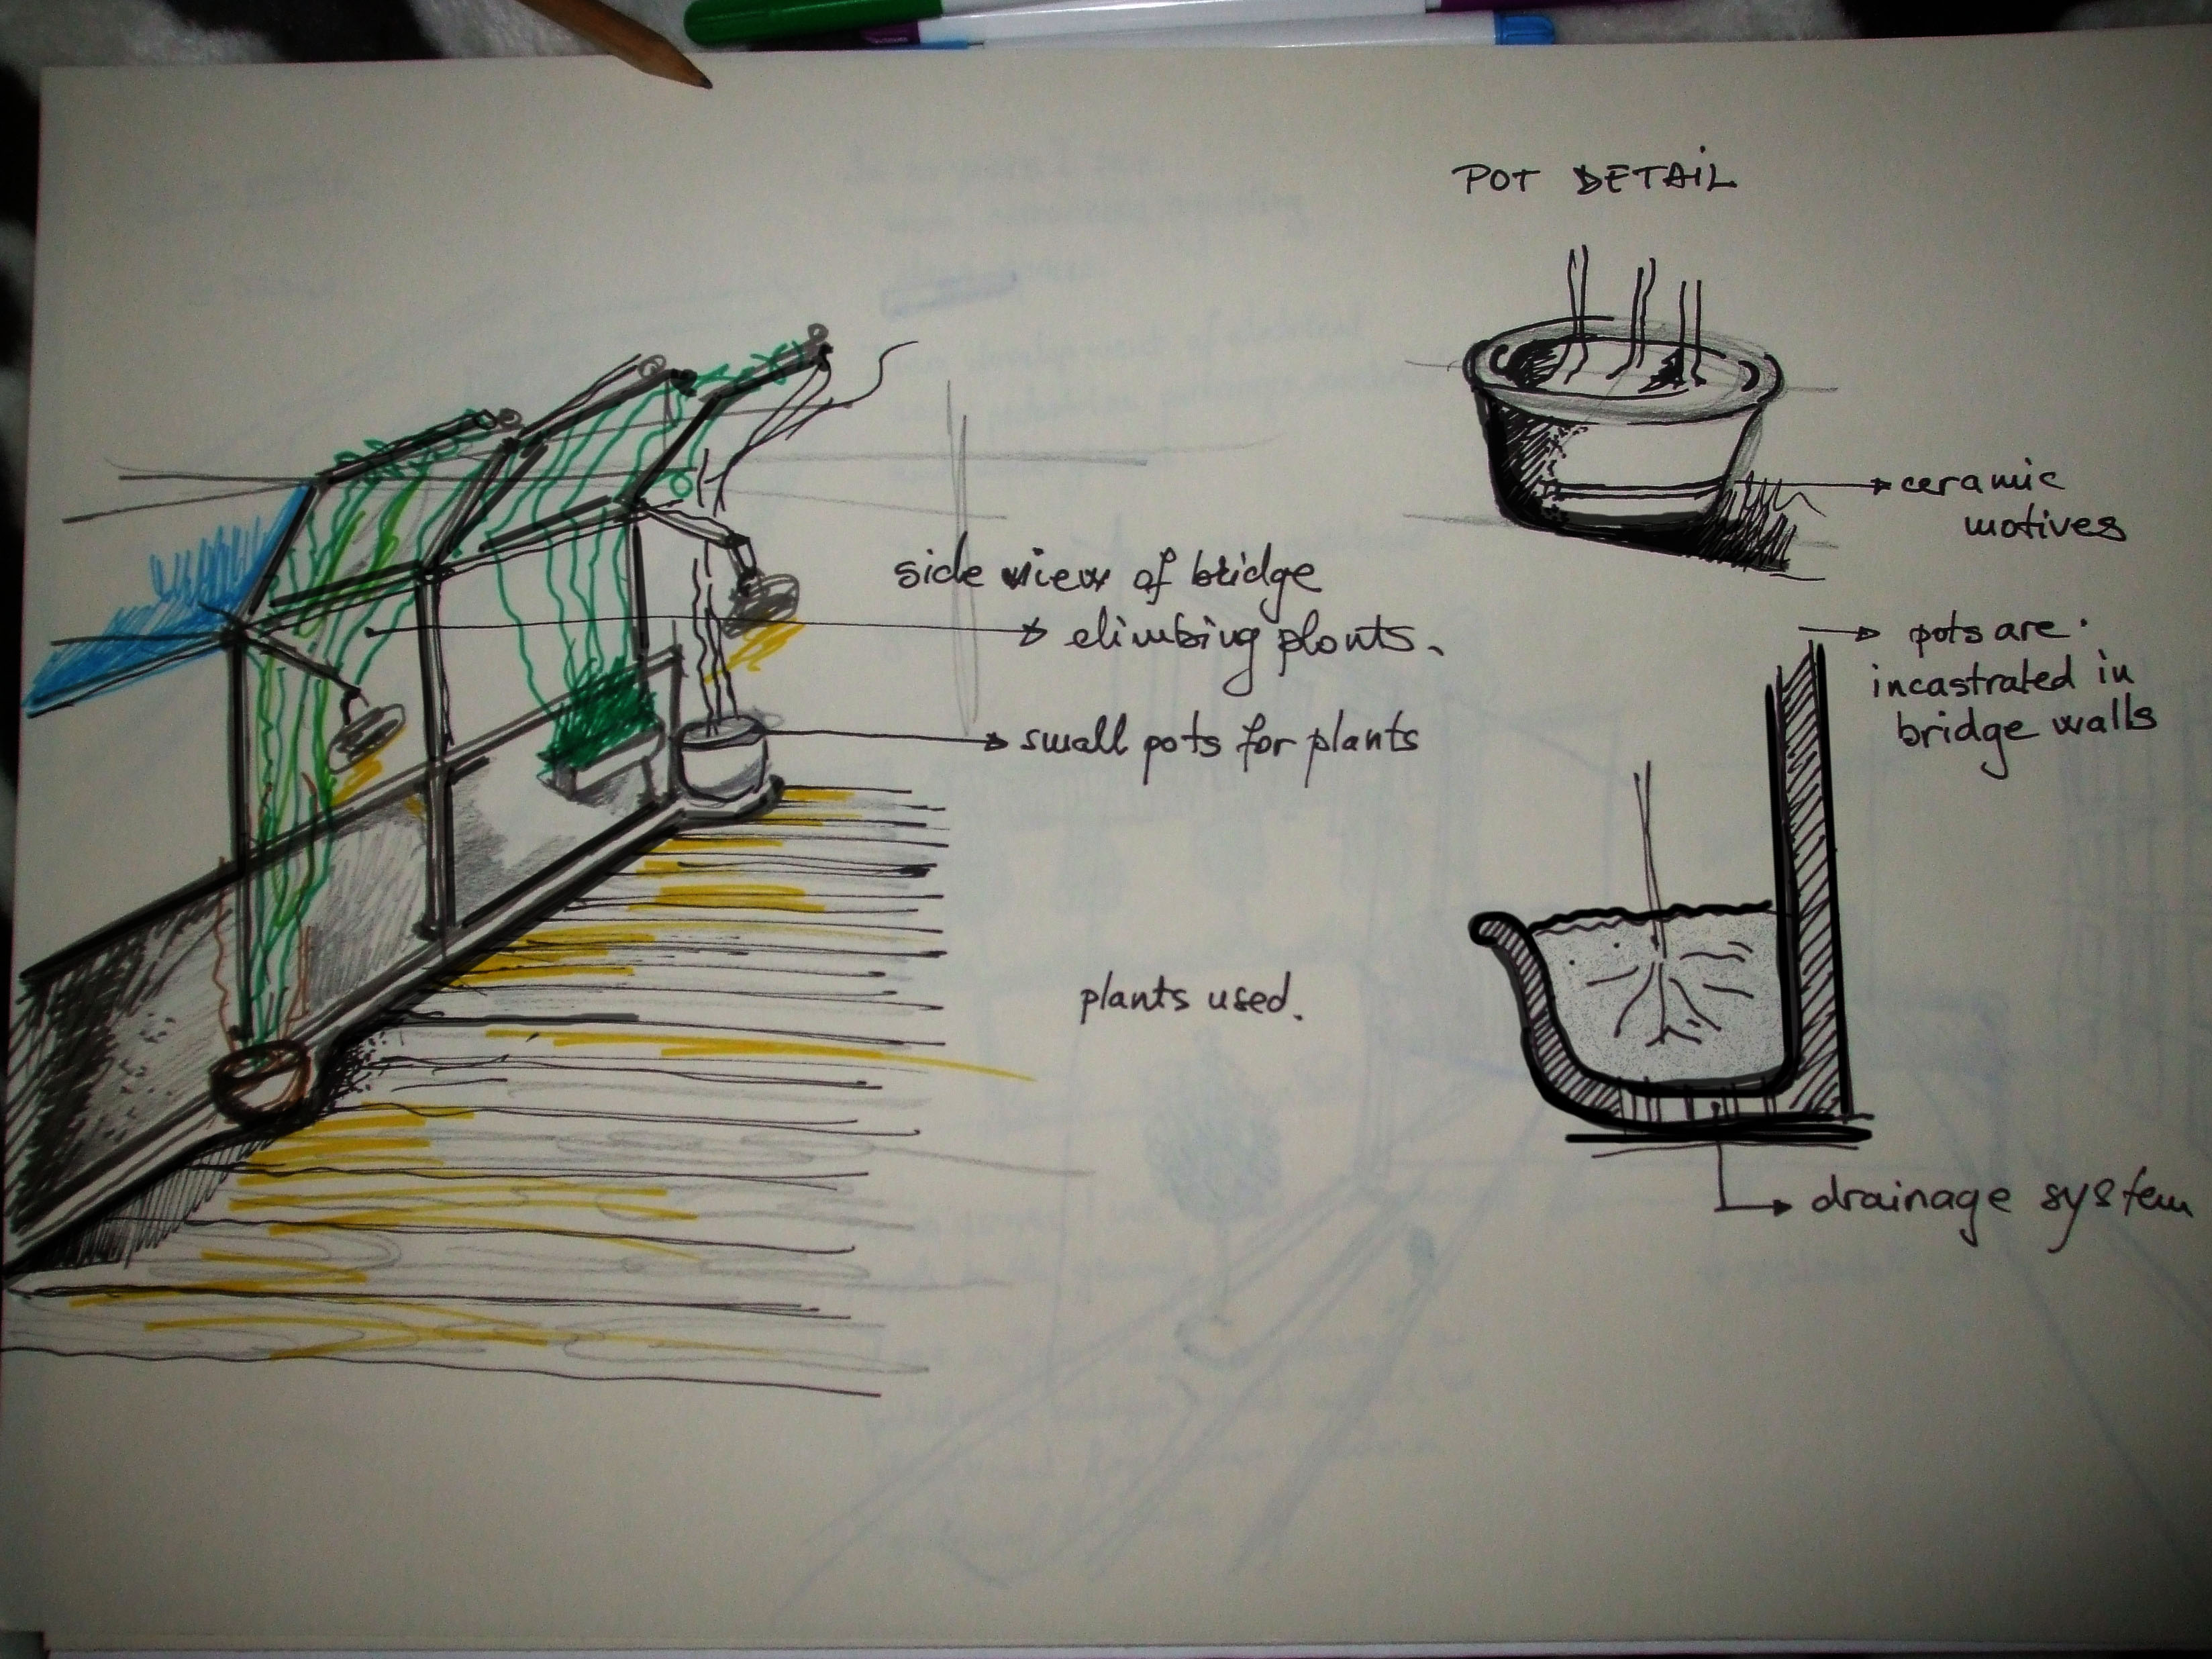 POT DETAIL
ceramic
motives
side view of bridge
climbing plants.
small pots for plants
pots are.
incastrated in
bridge walls
plants used.
drainage system